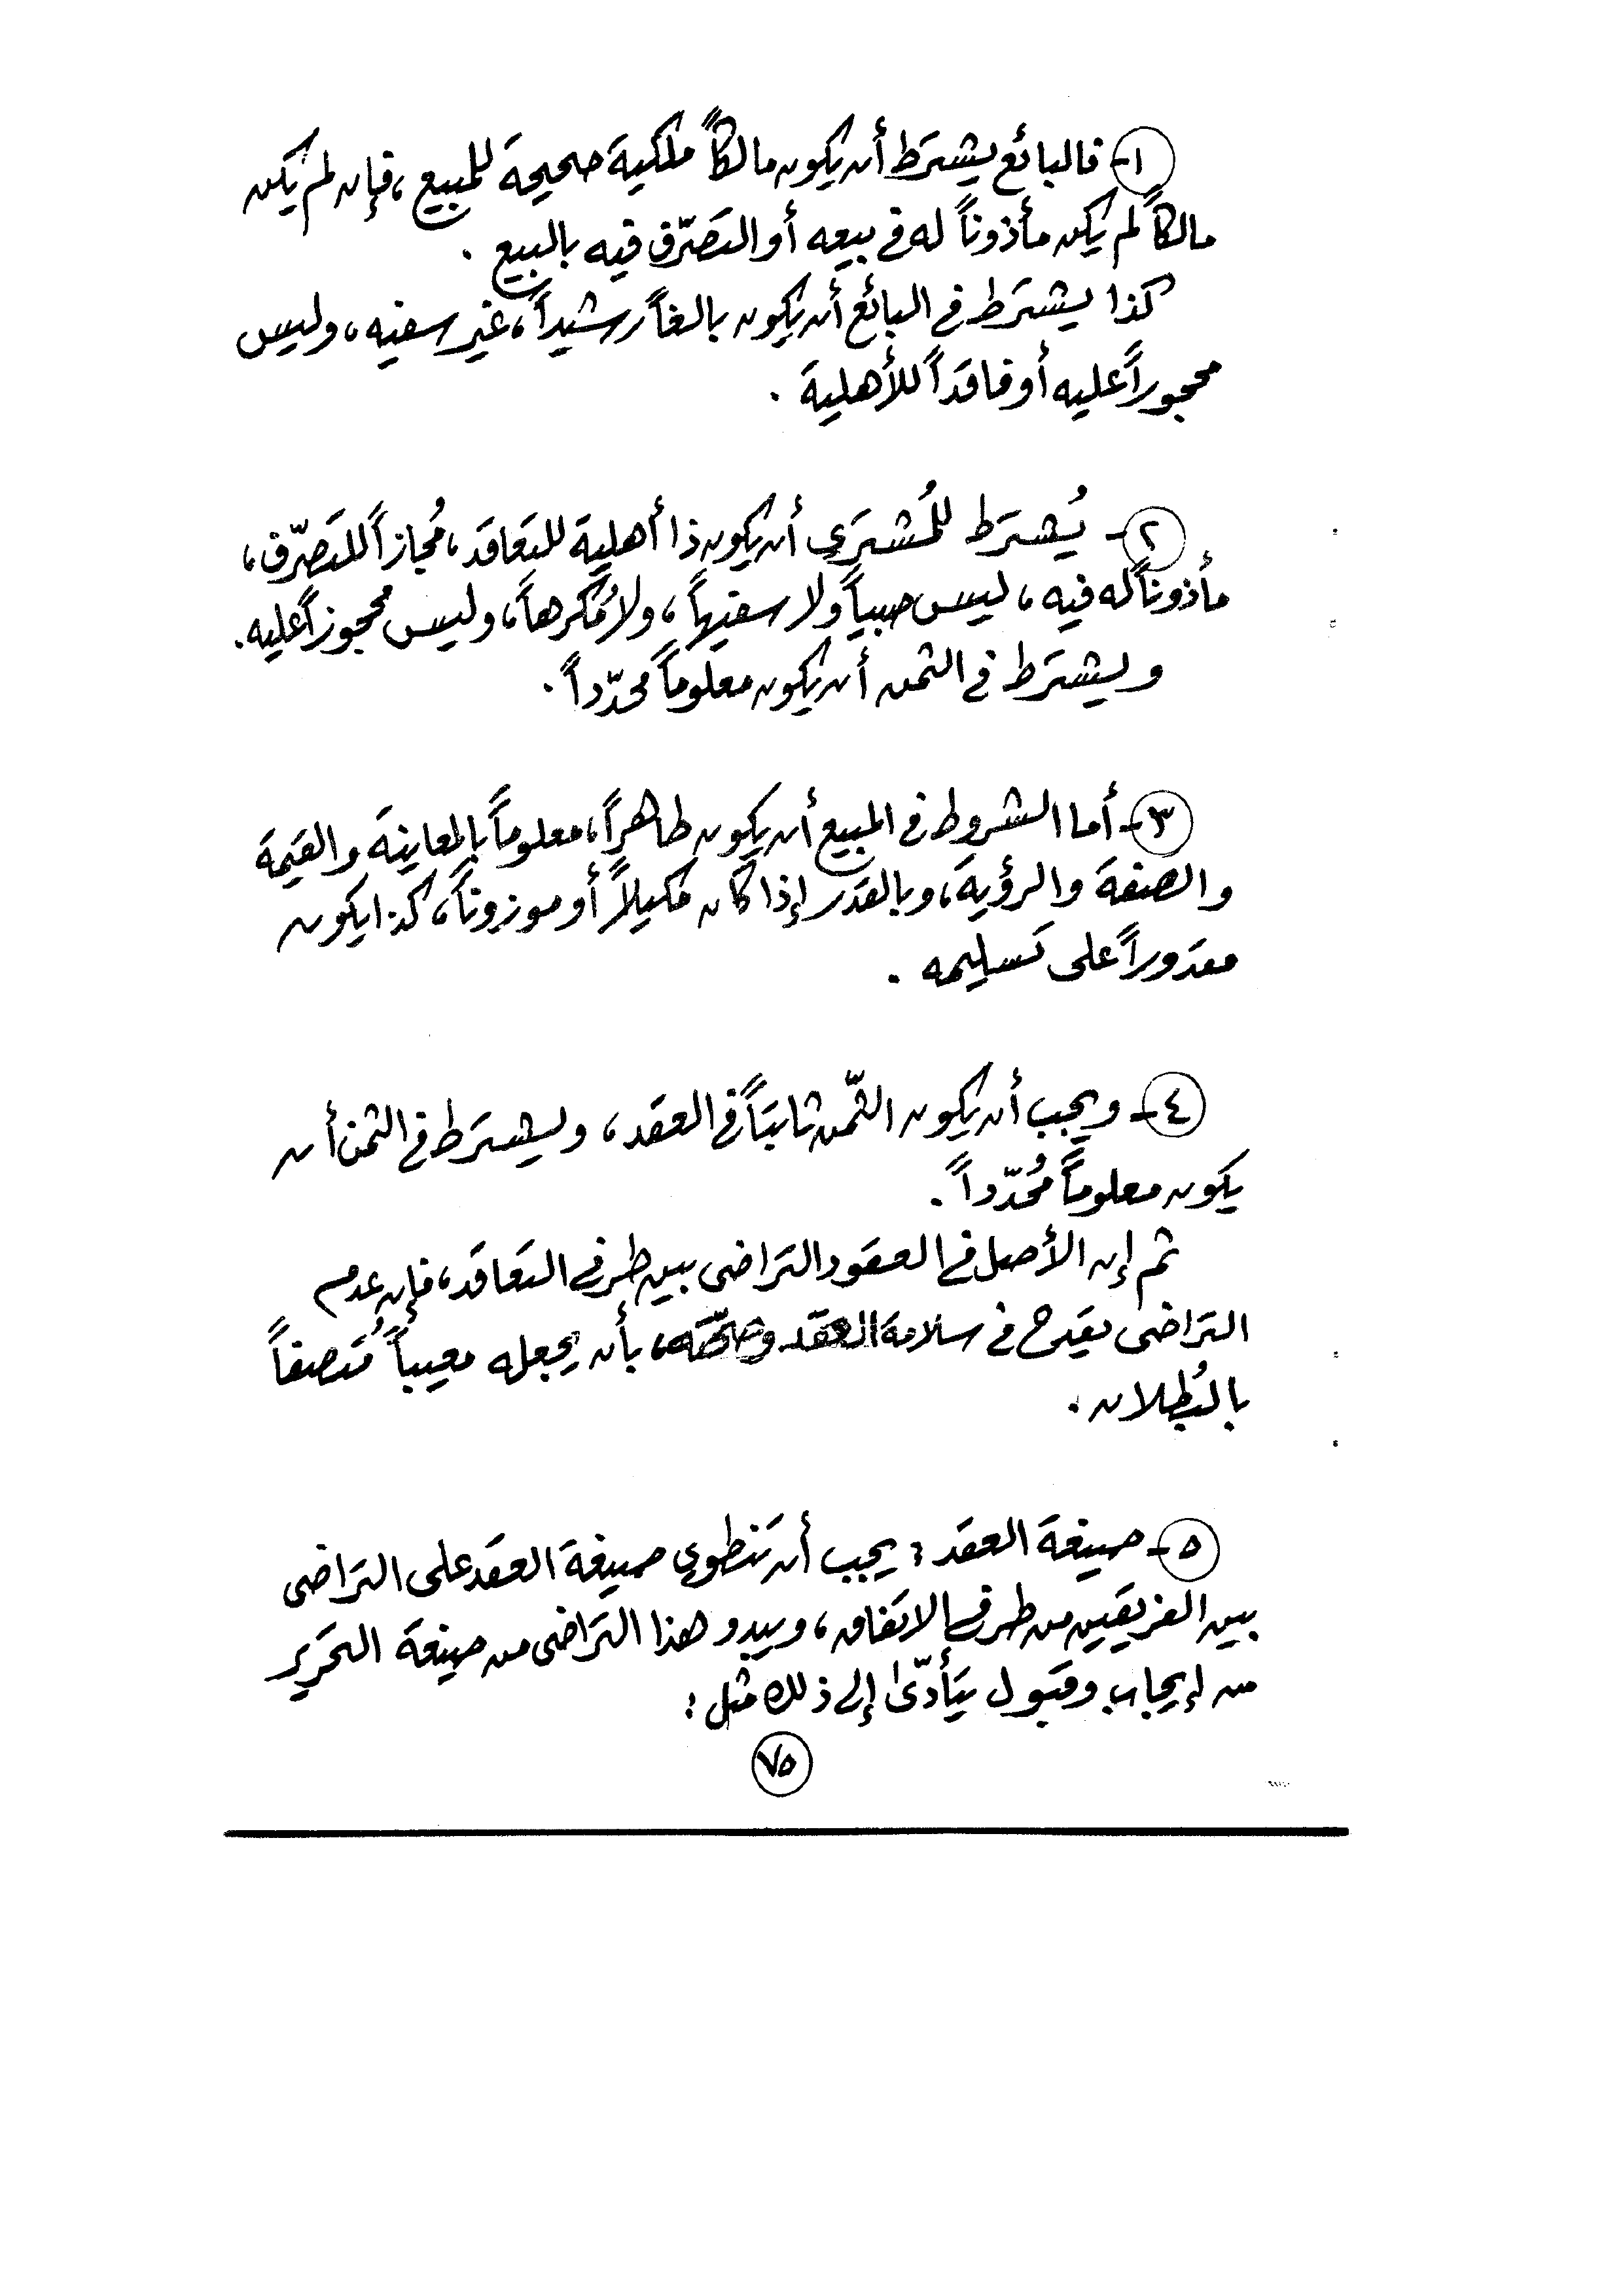 ١- فالبائع يشترط أن يكون مالكاً ملكية صحيحة للمبيع، فإن لم يكن
مالكاً لم يكن مأذوناً له في بيعه أو التصرّف فيه بالبيع.
كذا يشترط في البائع أن يكون بالغاً رشيداً، غير سفيه، وليس
محجوراً عليه أو فاقداً للأهلية.
٢- يُشترط للمُشتري أن يكون ذا أهلية للتعاقد، مُجازاً للتصرّف،
مأذوناً له فيه، ليس صبياً ولا سفيهاً، ولا مُكرهاً، وليس محجوزاً عليه.
ويشترط في الثمن أن يكون معلوماً محدّداً.
٣- أما الشروط في المبيع أن يكون طاهراً، معلوماً بالمعاينة والقيمة
والصفة والرؤية، وبالقدر إذا كان مكيلاً أو موزوناً، كذا يكون
مقدوراً على تسليمه.
٤- ويجب أن يكون الثّمن ثابتاً في العقد، ويشترط في الثمن أن
يكون معلوماً مُحدّداً.
ثم إن الأصل في العقود التراضي بين طرفي التعاقد، فإن عدم
التراضي يقدح في سلامة العقد وصحّته، بأن يجعله معيباً مُتصفاً
بالبُطلان.
٥- صيغة العقد: يجب أن تنطوي صيغة العقد على التراضي
بين الفريقين من طرفي الاتفاق، ويبدو هذا التراضي من صيغة التحرير
من إيجاب وقبول يتأدّى إلى ذلك مثل:
٧٥